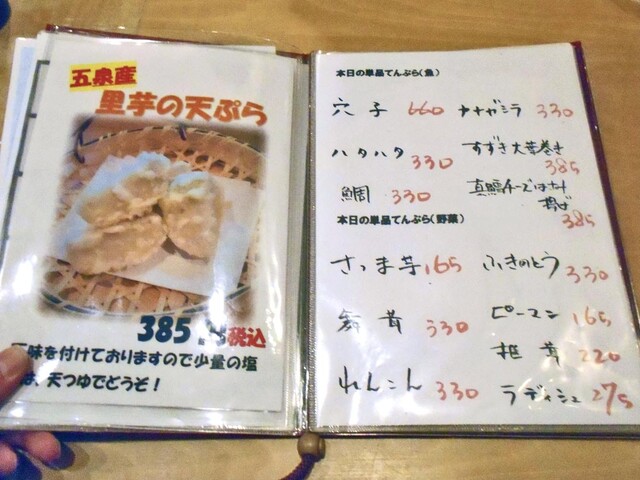 五泉産
里芋の天ぷら
385円税込
味を付けておりますので少量の塩
は、天つゆでどうぞ！
本日の単品てんぷら(魚)
穴子 660
ハタハタ 330
鯛 330
ガシラ 330
すずき大葉巻き
385
真鱈チーズはさみ
揚げ
385
本日の単品てんぷら(野菜)
さつま芋 165
舞茸 330
れんこん 330
ふきのとう 330
ピーマン 165
椎茸 220
ラディシュ 275